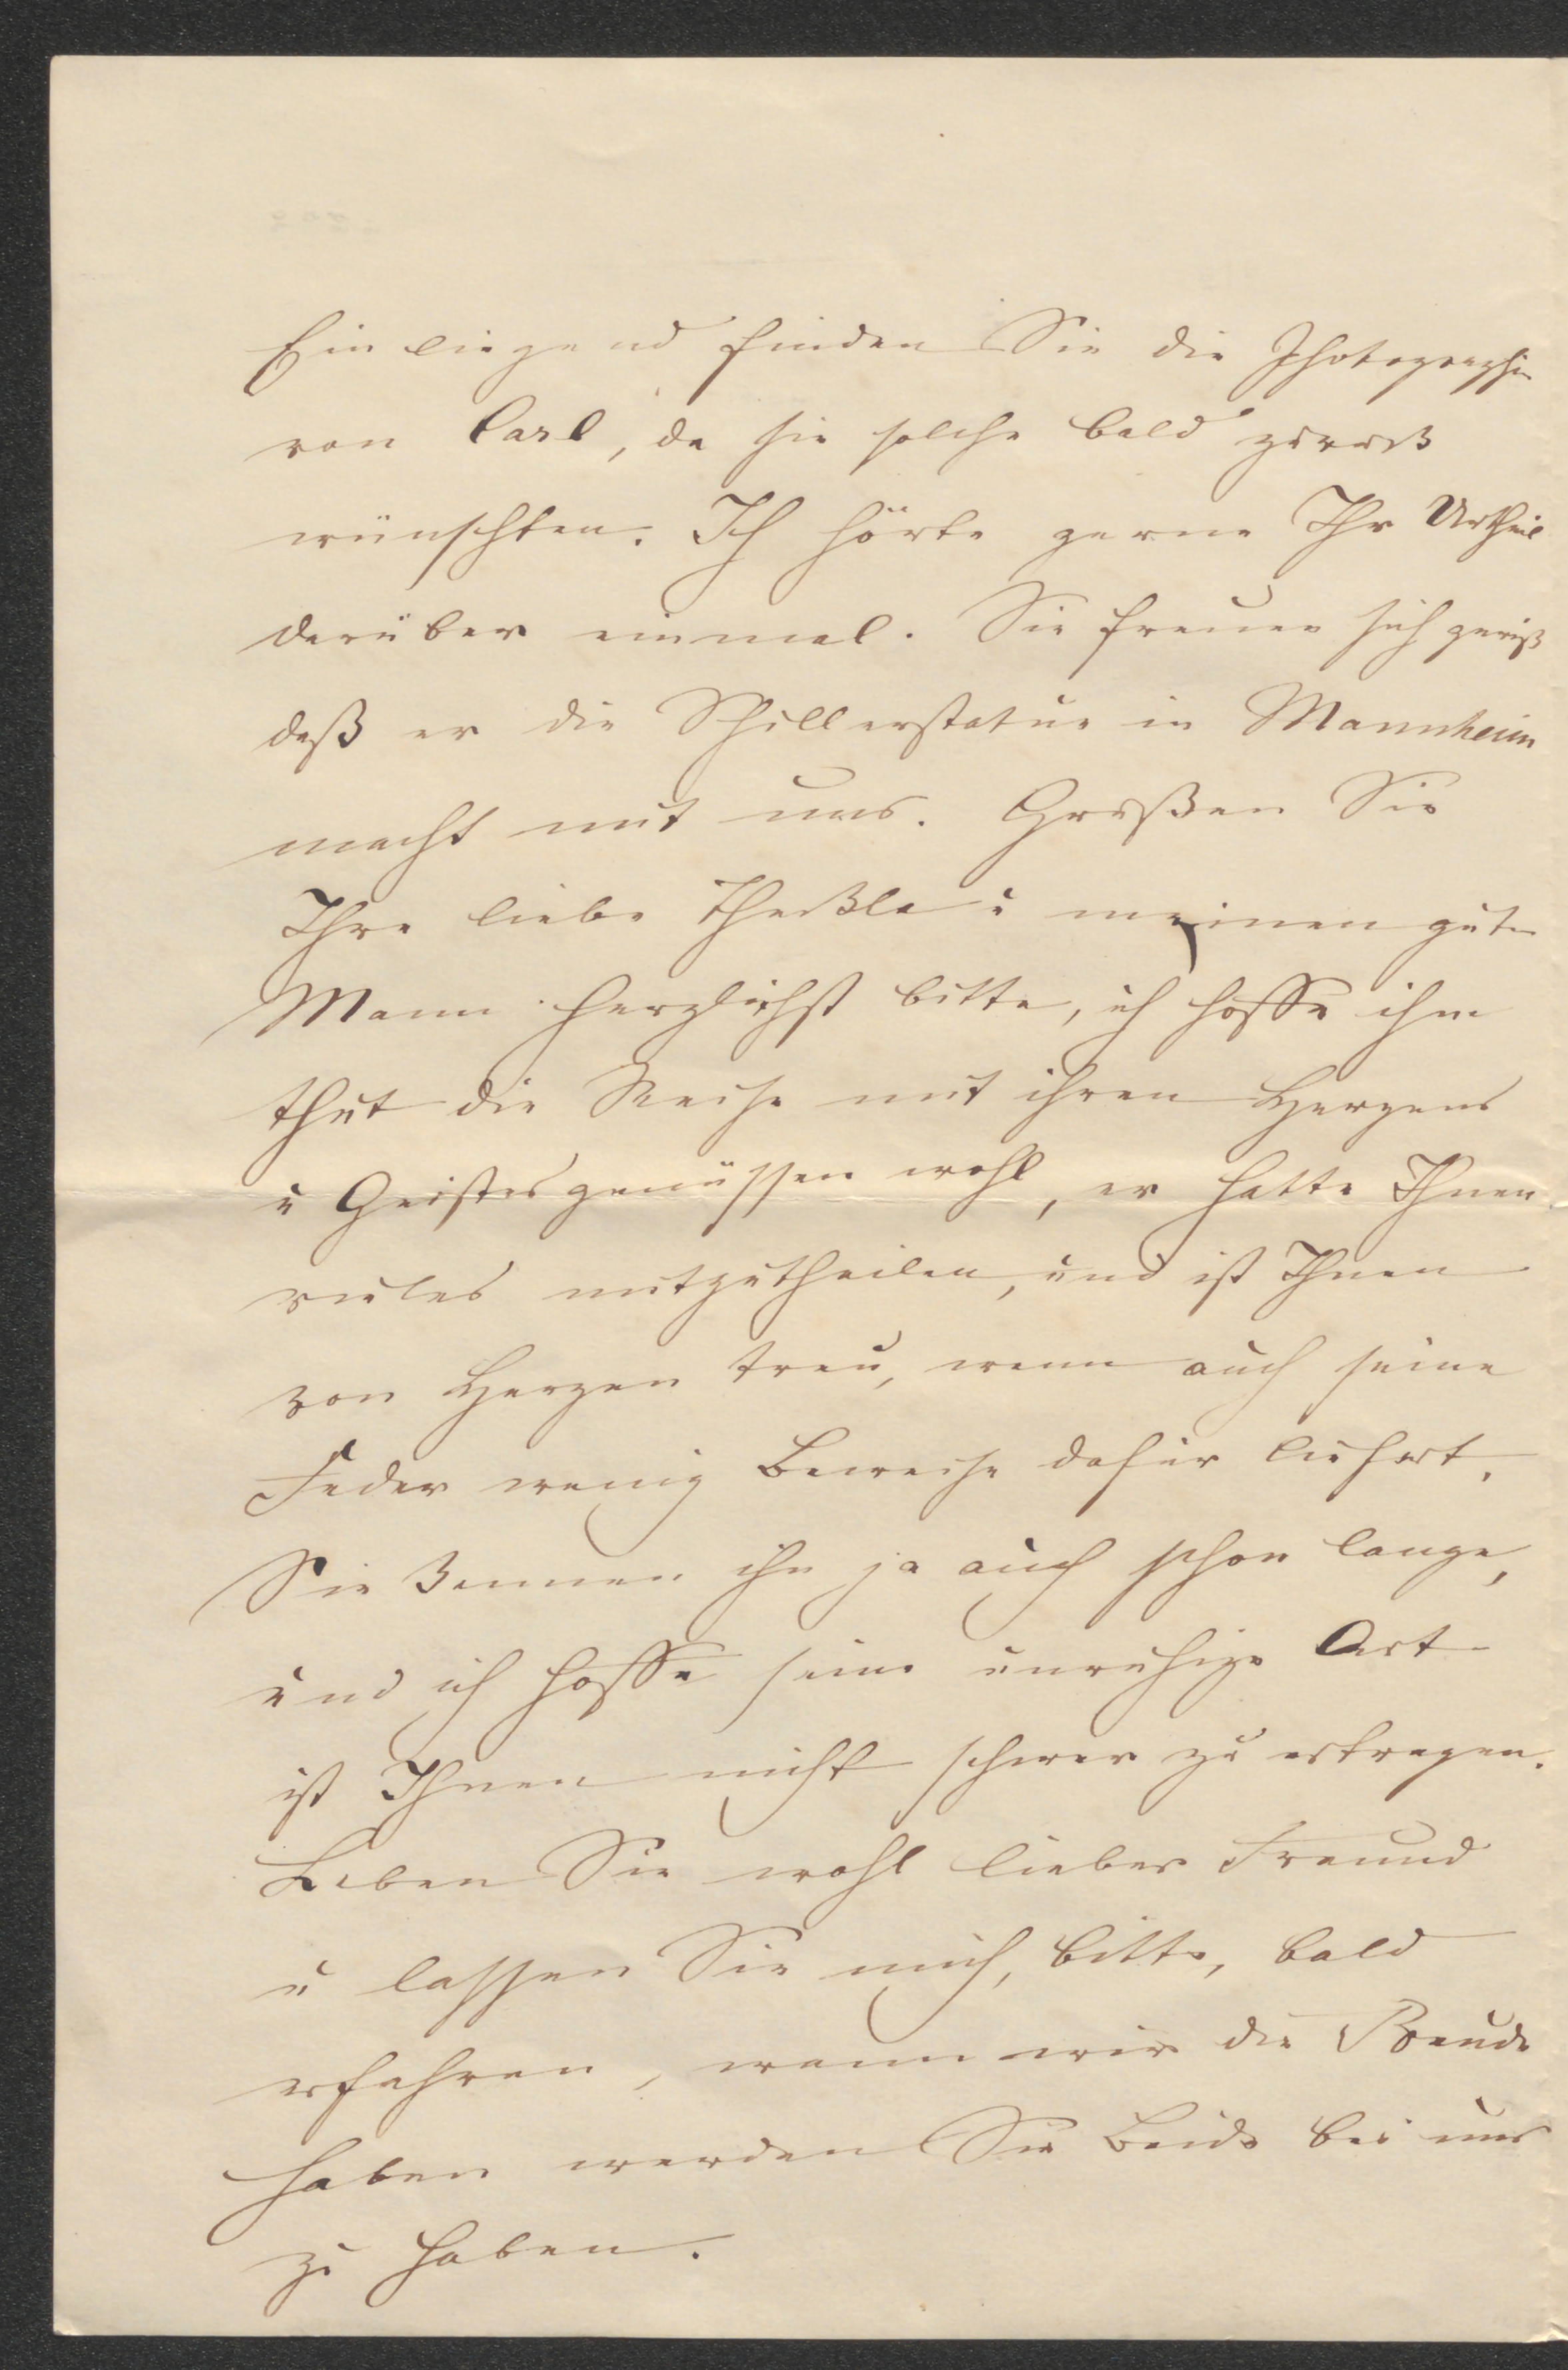 Einliegend finden Sie die Photographie
von Carl, da sie solche bald zurück
wünschten. Ich hörte gerne Ihr Urtheil
darüber einmal. Sie freuen sich gewiß
daß er die Schillerstatue in Mannheim
macht mit uns. Grüßen Sie
Ihre liebe Thekla u meinen guten
Mann herzlichst bitte, ich hoffe ihm
thut die Reise mit ihren Herzens
u Geistesgenüssen wohl, er hatte Ihnen
vieles mitzutheilen, und ist Ihnen
von Herzen treu, wenn auch seine
Feder wenig Beweise dafür liefert,
Sie kennen ihn ja auch schon lange,
und ich hoffe seine unruhige Art
ist Ihnen nicht schwer zu ertragen.
Leben Sie wohl lieber Freund
u lassen Sie mich, bitte, bald
erfahren, wann wir die Freude
haben werden Sie Beide bei uns
zu haben.